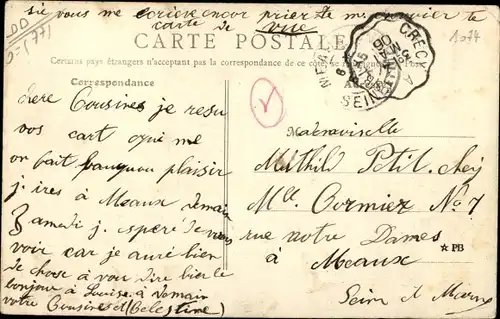 si vous me écrivé encor prierte me envoier te
carte de vue
D-(77)
1074
CARTE POSTALE
Certains pays étrangers n'acceptent pas la correspondance de ce côté
Correspondance
CRECY A
SEINE
chere Cousines je resu
vos cart qui me
on fait bauquou plaisir
j ires à Meaux demain
Samedi j. esperé de vous
voir car je auré bien
de chose à vou dire bien le
bonjour à Louise à Demain
votre Cousines (Celestine)
Mademoiselle
Mathild Petit. chez
Mlle Cormier No 7
rue notre Dames
à Meaux
★ PB
Seim et Marne